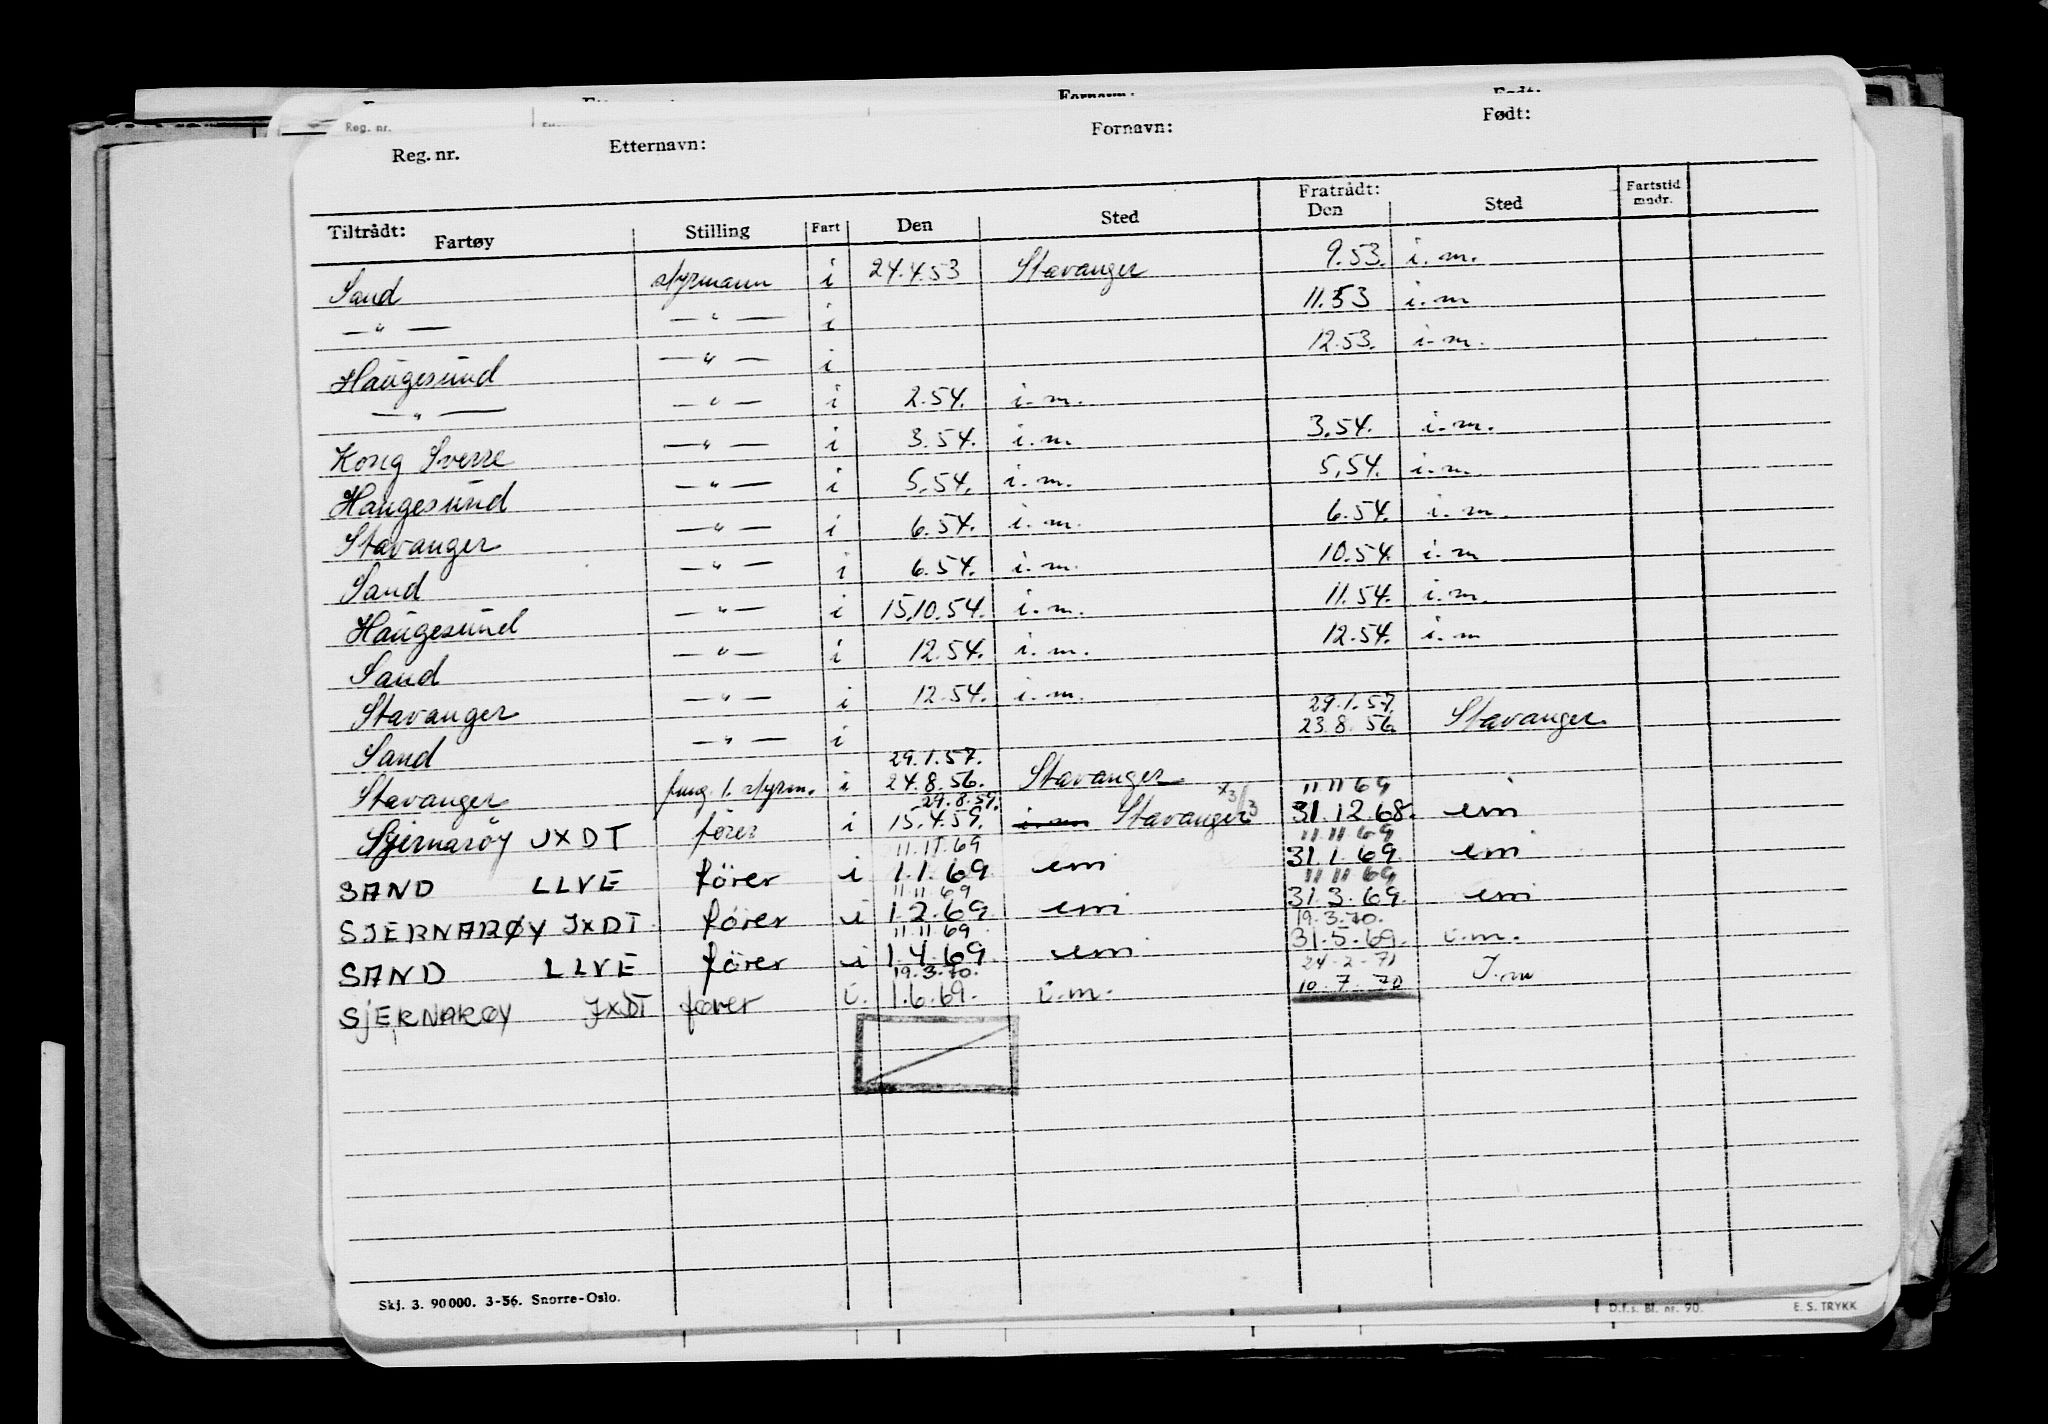 Fornavn: Født:
Reg. nr.
Reg. nr. Etternavn: Fornavn: Født:
Tiltrådt: Fartøy Stilling Fart Den Sted Fratrådt: Den Sted Fartstid mndr.
Sand styrmann i 24.4.53 Stavanger 9.53. i.m.
—"— —"— i 11.53 i.m
Haugesund —"— i 12.53. i.m.
—"— —"— i 2.54. i.m.
Kong Sverre —"— i 3.54. i.m. 3.54. i.m.
Haugesund —"— i 5.54. i.m. 5.54. i.m.
Stavanger —"— i 6.54. i.m. 6.54. i.m.
Sand —"— i 6.54. i.m. 10.54. i.m
Haugesund —"— i 15.10.54. i.m. 11.54. i.m.
Sand —"— i 12.54. i.m. 12.54. i.m
Stavanger —"— i 12.54. i.m.
29.1.57.
Sand —"— i 23.8.56. Stavanger
29.1.57.
Stavanger fung. 1. styrm. i 24.8.56. Stavanger
29.8.59. 11 11 69
Sjernarøy JXDT fører i 15.4.59. i.m Stavanger 31.12.68. em
11.11.69 11.11.69
SAND LLVE fører i 1.1.69 em 31.1.69 em
11 11 69 11 11 69
SJERNARØY JXDT fører i 1.2.69 em 31.3.69 em
11 11 69 19.3.70.
SAND LLVE fører i 1.4.69 em 31.5.69. i.m.
19.3.70. 24-2-71
SJERNARØY JXDT fører i. 1.6.69. i.m. 10.7.70 I.m
Skj. 3. 90000. 3-56. Snorre-Oslo. D.f.s. Bl. nr. 90. E. S. TRYKK